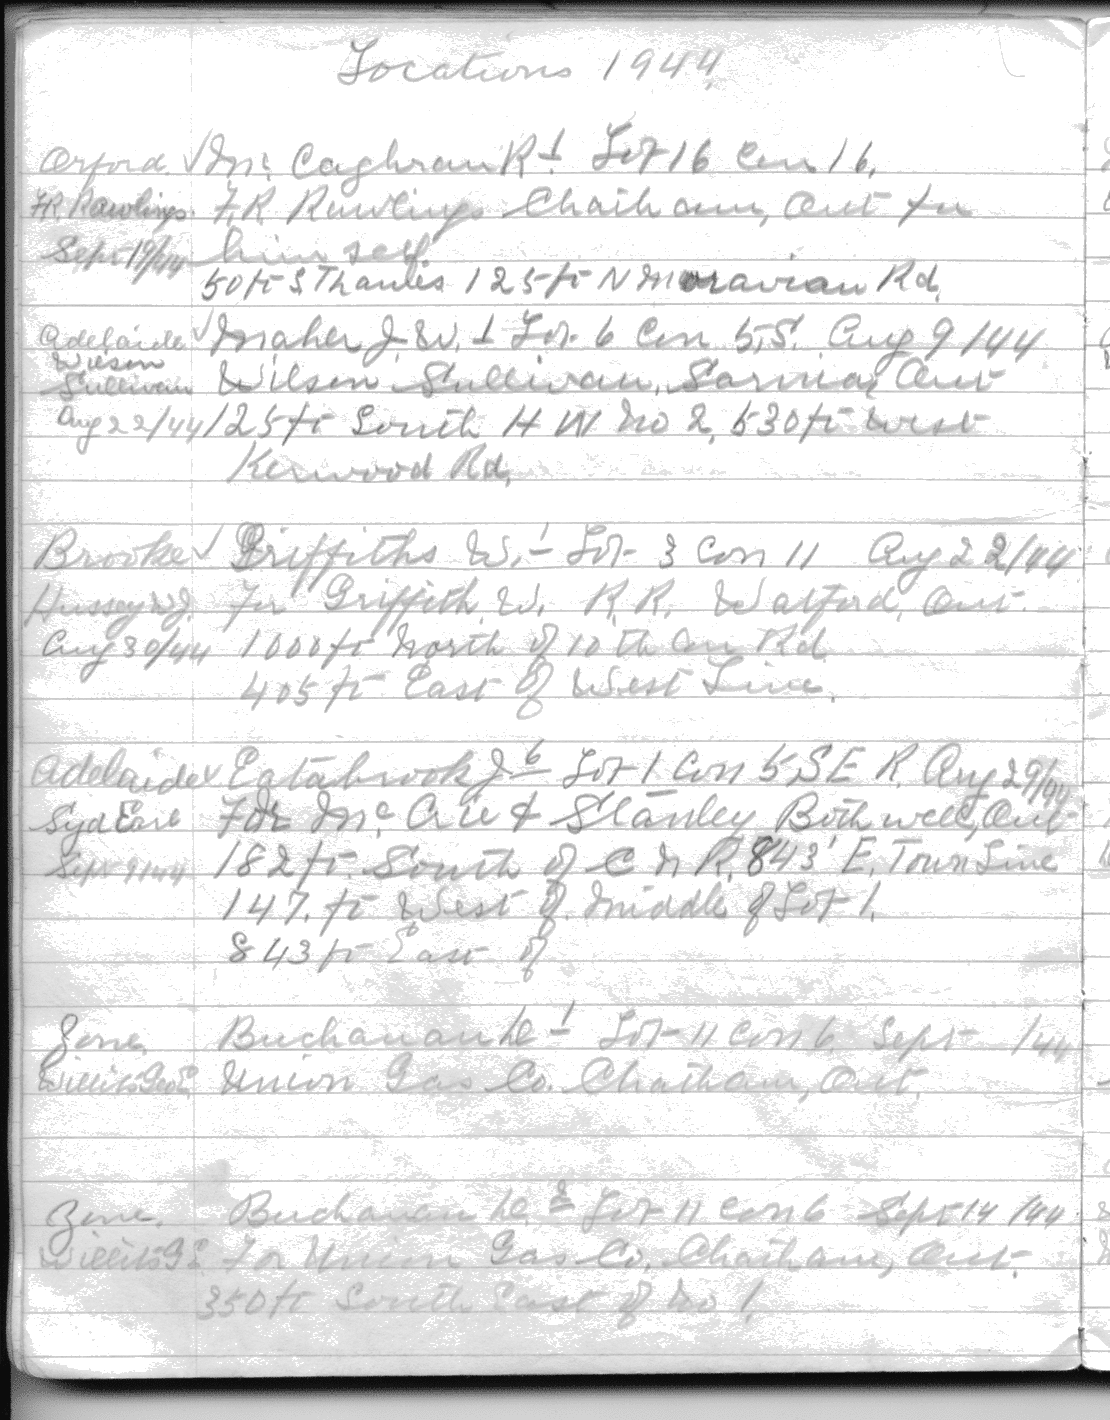 Locations 1944
Orford. √ Mc Caghran R 1 Lot 16 Con 16.
F.R. Rawlings. F.R Rawlings Chatham, Ont for
Sept 19/44 himself.
50 ft S. Thames 125 ft N Moravian Rd.
Adelaide √ Maher J. W. 1 Lot 6 Con 5, S. Aug 9/44
Wilson
Sullivan Wilson Sullivan, Sarnia, Ont
Aug 22/44 125 ft South H W No 2, 530 ft West
Kerwood Rd,
Brooke √ Griffiths W. 1 Lot 3 Con 11 Aug 22/44
Hussey W.J. For Griffith, W. R.R. Watford, Ont.
Aug 30/44 1000 ft North of 10 th Con Rd
405 ft East of West Line.
Adelaide √ Eatabrook J. 6 Lot 1 Con 5, S E R. Aug 29/44
Syd Earl For Mc Crie & Stanley Bothwell, Ont
Sept 9/44 182 ft. South of C N R, 843' E. Town Line
147. ft West of Middle of Lot 1.
843 ft East of
Zone. Buchanan 1 Lot 11 Con 6 Sept /44
Willits Geo E. Union Gas Co. Chatham, Ont.
Zone. Buchanan 2 Lot 11 Con 6 Sept 14/44
Willits G E. For Union Gas Co. Chatham, Ont.
350 ft South East of No 1.